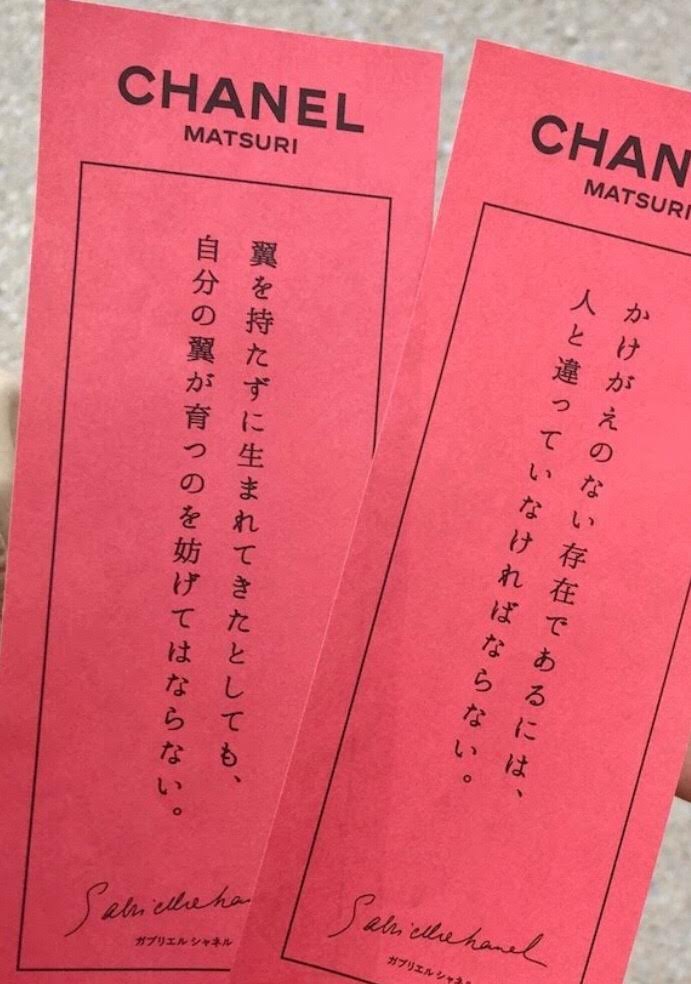 CHANEL
MATSURI
翼を持たずに生まれてきたとしても、
自分の翼が育つのを妨げてはならない。
Gabrielle Chanel
ガブリエル シャネル
CHAN
MATSURI
かけがえのない存在であるには、
人と違っていなければならない。
Gabrielle Chanel
ガブリエル シャネル